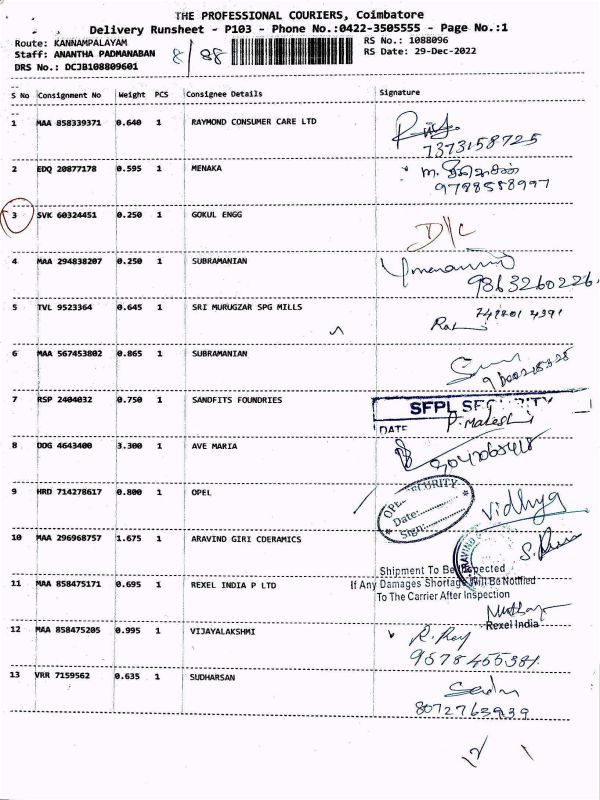 THE PROFESSIONAL COURIERS, Coimbatore
Delivery Runsheet - P103 - Phone No.:0422-3505555 - Page No.:1
Route: KANNAMPALAYAM
Staff: ANANTHA PADMANABAN
DRS No.: DCJB108809601
8/88
RS No.: 1088096
RS Date: 29-Dec-2022
S No Consignment No Weight PCS Consignee Details Signature
1 MAA 858339371 0.640 1 RAYMOND CONSUMER CARE LTD
7373158725
2 EDQ 20877178 0.595 1 MENAKA
9788588997
3 SVK 60324451 0.250 1 GOKUL ENGG D/C
4 MAA 294838207 0.250 1 SUBRAMANIAN
9863260226
5 TVL 9523364 0.645 1 SRI MURUGZAR SPG MILLS
6 MAA 567453802 0.865 1 SUBRAMANIAN
7 RSP 2404032 0.750 1 SANDFITS FOUNDRIES
SFPL SECURITY
DATE
P. Mahesh
8 DDG 4643400 3.300 1 AVE MARIA
9 HRD 714278617 0.800 1 OPEL
SECURITY
Date:
Sign:
Vidhya
10 MAA 296968757 1.675 1 ARAVIND GIRI CDERAMICS
11 MAA 858475171 0.695 1 REXEL INDIA P LTD
Shipment To Be Inspected
If Any Damages Shortage Will Be Notified
To The Carrier After Inspection
Rexel India
12 MAA 858475205 0.995 1 VIJAYALAKSHMI
13 VRR 7159562 0.635 1 SUDHARSAN
8072763939